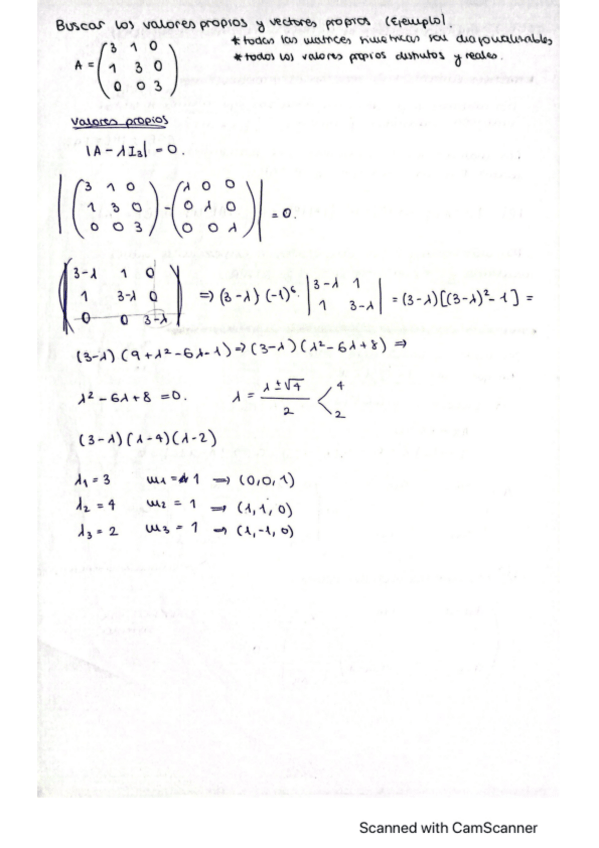 Buscar los valores propios y vectores propios (ejemplo).
* todas las matrices simétricas son diagonalizables,
* todos los valores propios distintos y reales.
A = (3 1 0
1 3 0
0 0 3)
valores propios
|A - λI₃| = 0.
|(3 1 0
1 3 0
0 0 3) - (λ 0 0
0 λ 0
0 0 λ)| = 0.
|3-λ 1 0
1 3-λ 0
0 0 3-λ| => (3-λ)(-1)⁶ · |3-λ 1
1 3-λ| = (3-λ)[(3-λ)² - 1] =
(3-λ)(9+λ²-6λ-1) => (3-λ)(λ²-6λ+8) =>
λ² - 6λ + 8 = 0. λ = λ ± √4 / 2 < 4
2
(3-λ)(λ-4)(λ-2)
λ₁ = 3 m₁ = 1 => (0,0,1)
λ₂ = 4 m₂ = 1 => (1,1,0)
λ₃ = 2 m₃ = 1 => (1,-1,0)
Scanned with CamScanner